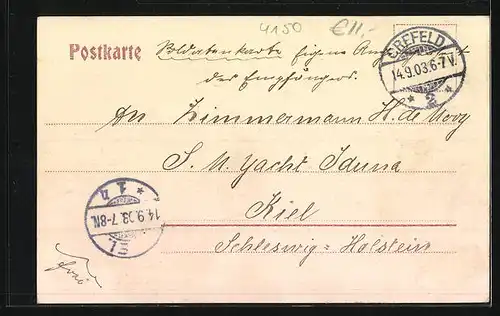 4150 €11,-
Postkarte Soldatenkarte Eigene Ang
des Empfängers.
CREFELD
14.9.03.6-7V.
* 2 *
An Zimmermann H. de Vooy
S. M. Yacht Iduna
Kiel
Schleswig=Holstein
KIEL
14.9.03.7-8N.
* 1 d